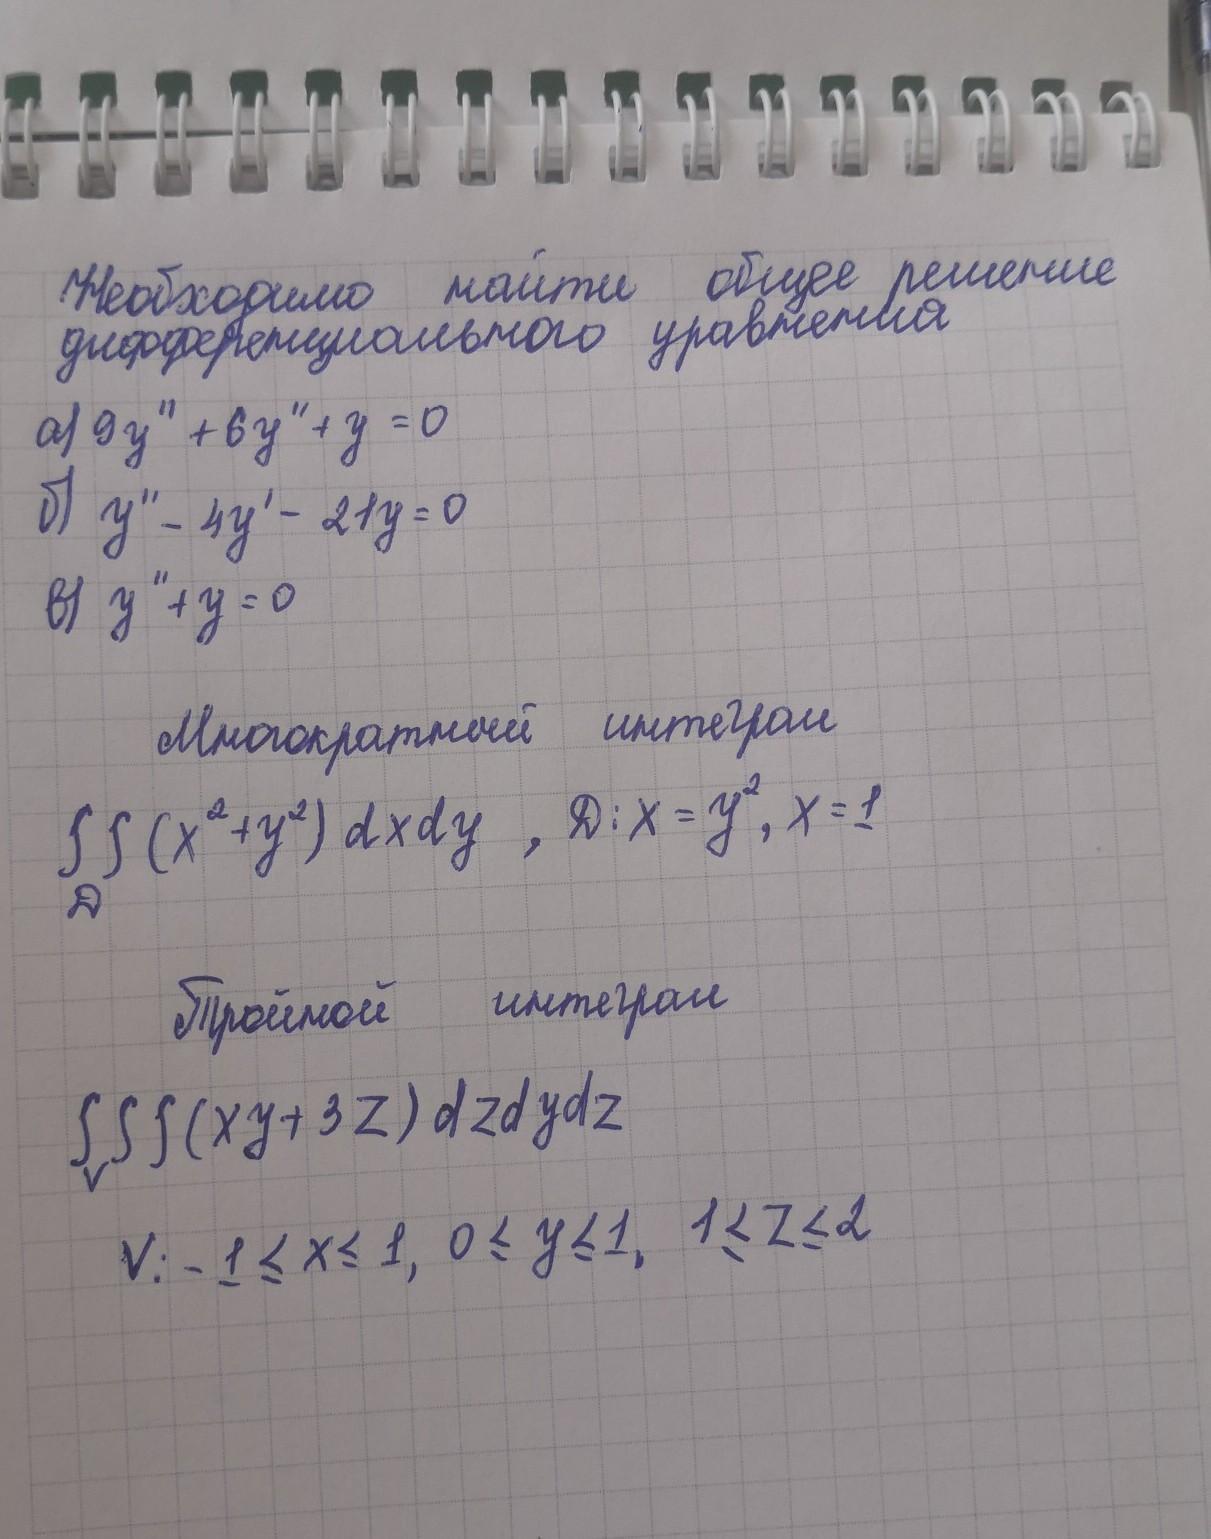 Необходимо найти общее решение
дифференциального уравнения
а) 9y" + 6y" + y = 0
б) y" - 4y' - 21y = 0
в) y" + y = 0
Многократный интеграл
∫∫ (x² + y²) dxdy , D: x = y², x = 1
D
Тройной интеграл
∫∫∫ (xy + 3z) dzdydz
V
V: -1 ≤ x ≤ 1, 0 ≤ y ≤ 1, 1 ≤ z ≤ 2